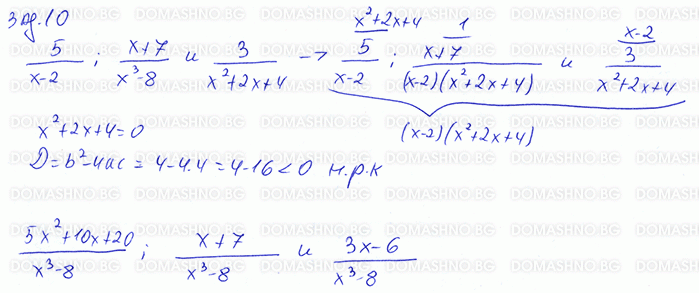 Зад.10
5/(x-2) ; (x+7)/(x³-8) и 3/(x²+2x+4) -> x²+2x+4⌋ 5/(x-2) ; 1⌋ (x+7)/((x-2)(x²+2x+4)) и x-2⌋ 3/(x²+2x+4)
(x-2)(x²+2x+4)
x²+2x+4=0
D=b²-4ac = 4-4.4 = 4-16<0 н.р.к
(5x²+10x+20)/(x³-8) ; (x+7)/(x³-8) и (3x-6)/(x³-8)
DOMASHNO.BG